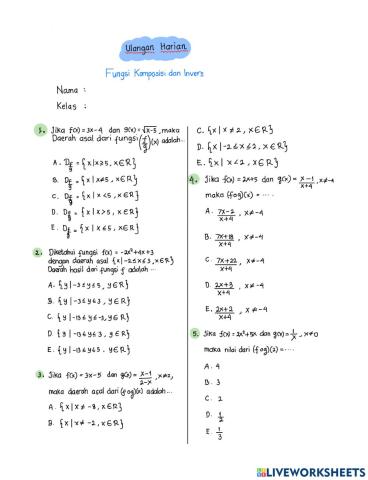 Ulangan Harian
Fungsi Komposisi dan Invers
Nama :
Kelas :
1. Jika f(x) = 3x-4 dan g(x) = √x-5, maka
Daerah asal dari fungsi (f/g)(x) adalah...
A. D f/g = {x | x ≥ 5, x ∈ R}
B. D f/g = {x | x ≠ 5, x ∈ R}
C. D f/g = {x | x < 5, x ∈ R}
D. D f/g = {x | x > 5, x ∈ R}
E. D f/g = {x | x ≤ 5, x ∈ R}
2. Diketahui fungsi f(x) = -2x²+4x+3
dengan daerah asal {x | -2 ≤ x ≤ 3, x ∈ R}
Daerah hasil dari fungsi f adalah...
A. {y | -3 ≤ y ≤ 5, y ∈ R}
B. {y | -3 ≤ y ≤ 3, y ∈ R}
C. {y | -13 ≤ y ≤ -3, y ∈ R}
D. {y | -13 ≤ y ≤ 3, y ∈ R}
E. {y | -13 ≤ y ≤ 5, y ∈ R}
3. Jika f(x) = 3x-5 dan g(x) = x-1/2-x, x≠2,
maka daerah asal dari (fog)(x) adalah...
A. {x | x ≠ -8, x ∈ R}
B. {x | x ≠ -2, x ∈ R}
C. {x | x ≠ 2, x ∈ R}
D. {x | -2 ≤ x ≤ 2, x ∈ R}
E. {x | x < 2, x ∈ R}
4. Jika f(x) = 2x+5 dan g(x) = x-1/x+4, x≠-4
maka (fog)(x) = ....
A. 7x-2/x+4, x≠-4
B. 7x+18/x+4, x≠-4
C. 7x+22/x+4, x≠-4
D. 2x+3/x+4, x≠-4
E. 2x+2/x+4, x≠-4
5. Jika f(x) = 2x²+5x dan g(x) = 1/x, x≠0
maka nilai dari (fog)(2) = ....
A. 4
B. 3
C. 2
D. 1/2
E. 1/3
LIVEWORKSHEETS